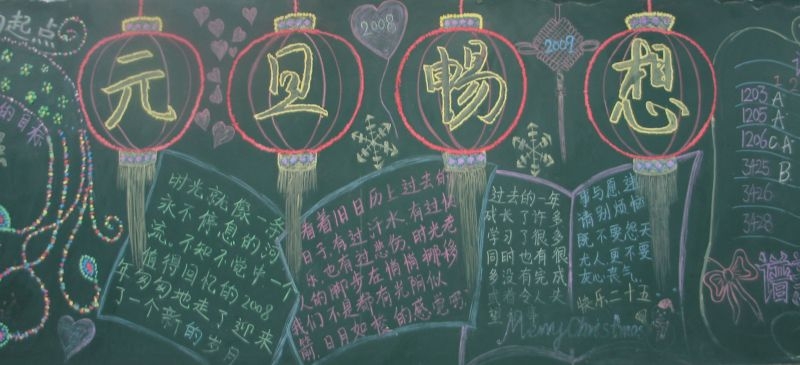 起点
元旦暢想
2008
2009
的目标
时光就像一条
永不停息的河
流,不知不觉中一个
值得回忆的2008
年匆匆地走了迎来
了一个新的岁月
看着旧日历上过去的
日子,有过汗水,有过快
乐,也有过悲伤,时光老
人的脚步在悄悄挪移
我们不是都有光阴似
箭,日月如梭的感觉吗
过去的一年
成长了许多
学习了很多
同时也有很
多没有完成
或有令人失
望
事与愿违
请别烦恼
既不要怨天
尤人更不要
灰心丧气。
快乐二十五
Merry Christmas
1203 A
1205 A
1206 C A
3425 B
3426
3428